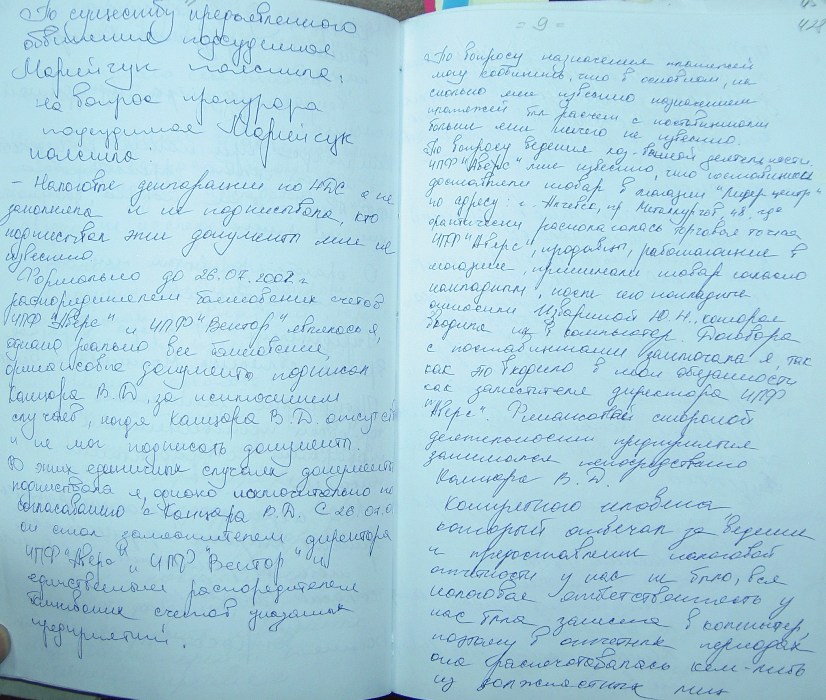 По существу предъявленного
обвинения подсудимая
Марейчук пояснила:
на вопрос прокурора
подсудимая Марейчук
пояснила:
– Налоговые декларации по НДС я не
заполняла и не подписывала, кто
подписывал эти документы мне не
известно.
Формально до 26.07.2002 г
распорядителем банковских счетов
ЧПФ "Аверс" и ЧПФ "Вектор" являлась я,
однако реально все банковские,
финансовые документы подписывал
Канцара В.Д, за исключением
случаев, когда Канцара В.Д. отсутст
и не мог подписать документы.
В этих единичных случаях документы
подписывала я, однако исключительно по
согласованию с Канцара В.Д. С 26.07.0
он стал заместителем директора
ЧПФ "Аверс" и ЧПФ "Вектор" и
единственным распорядителем
банковских счетов указанных
предприятий.
= 9 =
428
По вопросу назначения платежей
могу сообщить, что в основном, на
сколько мне известно назначением
платежей был расчет с поставщиками
больше мне ничего не известно.
По вопросу ведения хоз-венной деятельности
ЧПФ "Аверс" мне известно, что поставщики
доставляли товар в магазин "Лидер центр"
по адресу: г. Алчевск, пр Металлургов, 48, где
фактически располагалась торговая точка
ЧПФ "Аверс", продавцы, работающие в
магазине, принимали товар согласно
накладным, после чего накладные
относили Ю.Н., которая
вводила их в компьютер. Договора
с поставщиками заключала я, так
как это входило в мои обязанности
как заместителя директора ЧПФ
"Аверс". Финансовой стороной
деятельности предприятия
занимался непосредственно
Канцара В.Д.
Конкретного человека
который отвечал за ведение
и предоставление налоговой
отчетности у нас не было, вся
налоговая ответственность у
нас была записана в компьютер,
поэтому в отчетных периодах
она распечатывалась кем-либо
из должностных лиц